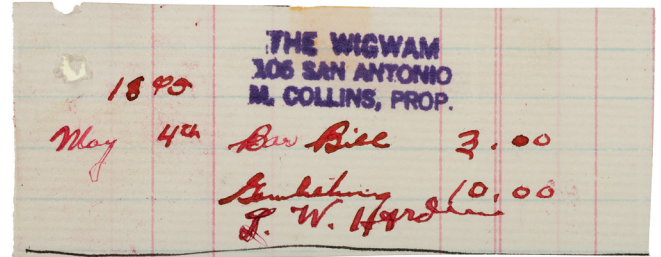 THE WIGWAM
106 SAN ANTONIO
M. COLLINS, PROP.
1895
May 4th Bar Bill 3.00
Gambling 10.00
J. W. Hardin